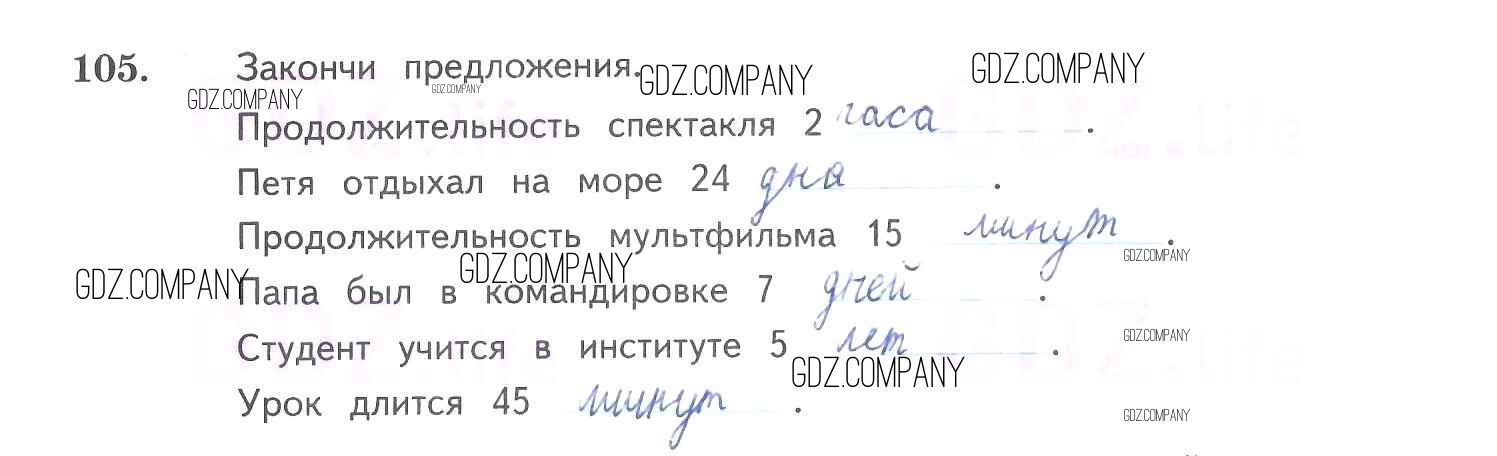 105. Закончи предложения. GDZ.COMPANY GDZ.COMPANY
GDZ.COMPANY GDZ.COMPANY
Продолжительность спектакля 2 часа.
Петя отдыхал на море 24 дня.
Продолжительность мультфильма 15 минут.
GDZ.COMPANY
GDZ.COMPANY GDZ.COMPANY
Папа был в командировке 7 дней.
GDZ.COMPANY
Студент учится в институте 5 лет.
GDZ.COMPANY
Урок длится 45 минут.
GDZ.COMPANY